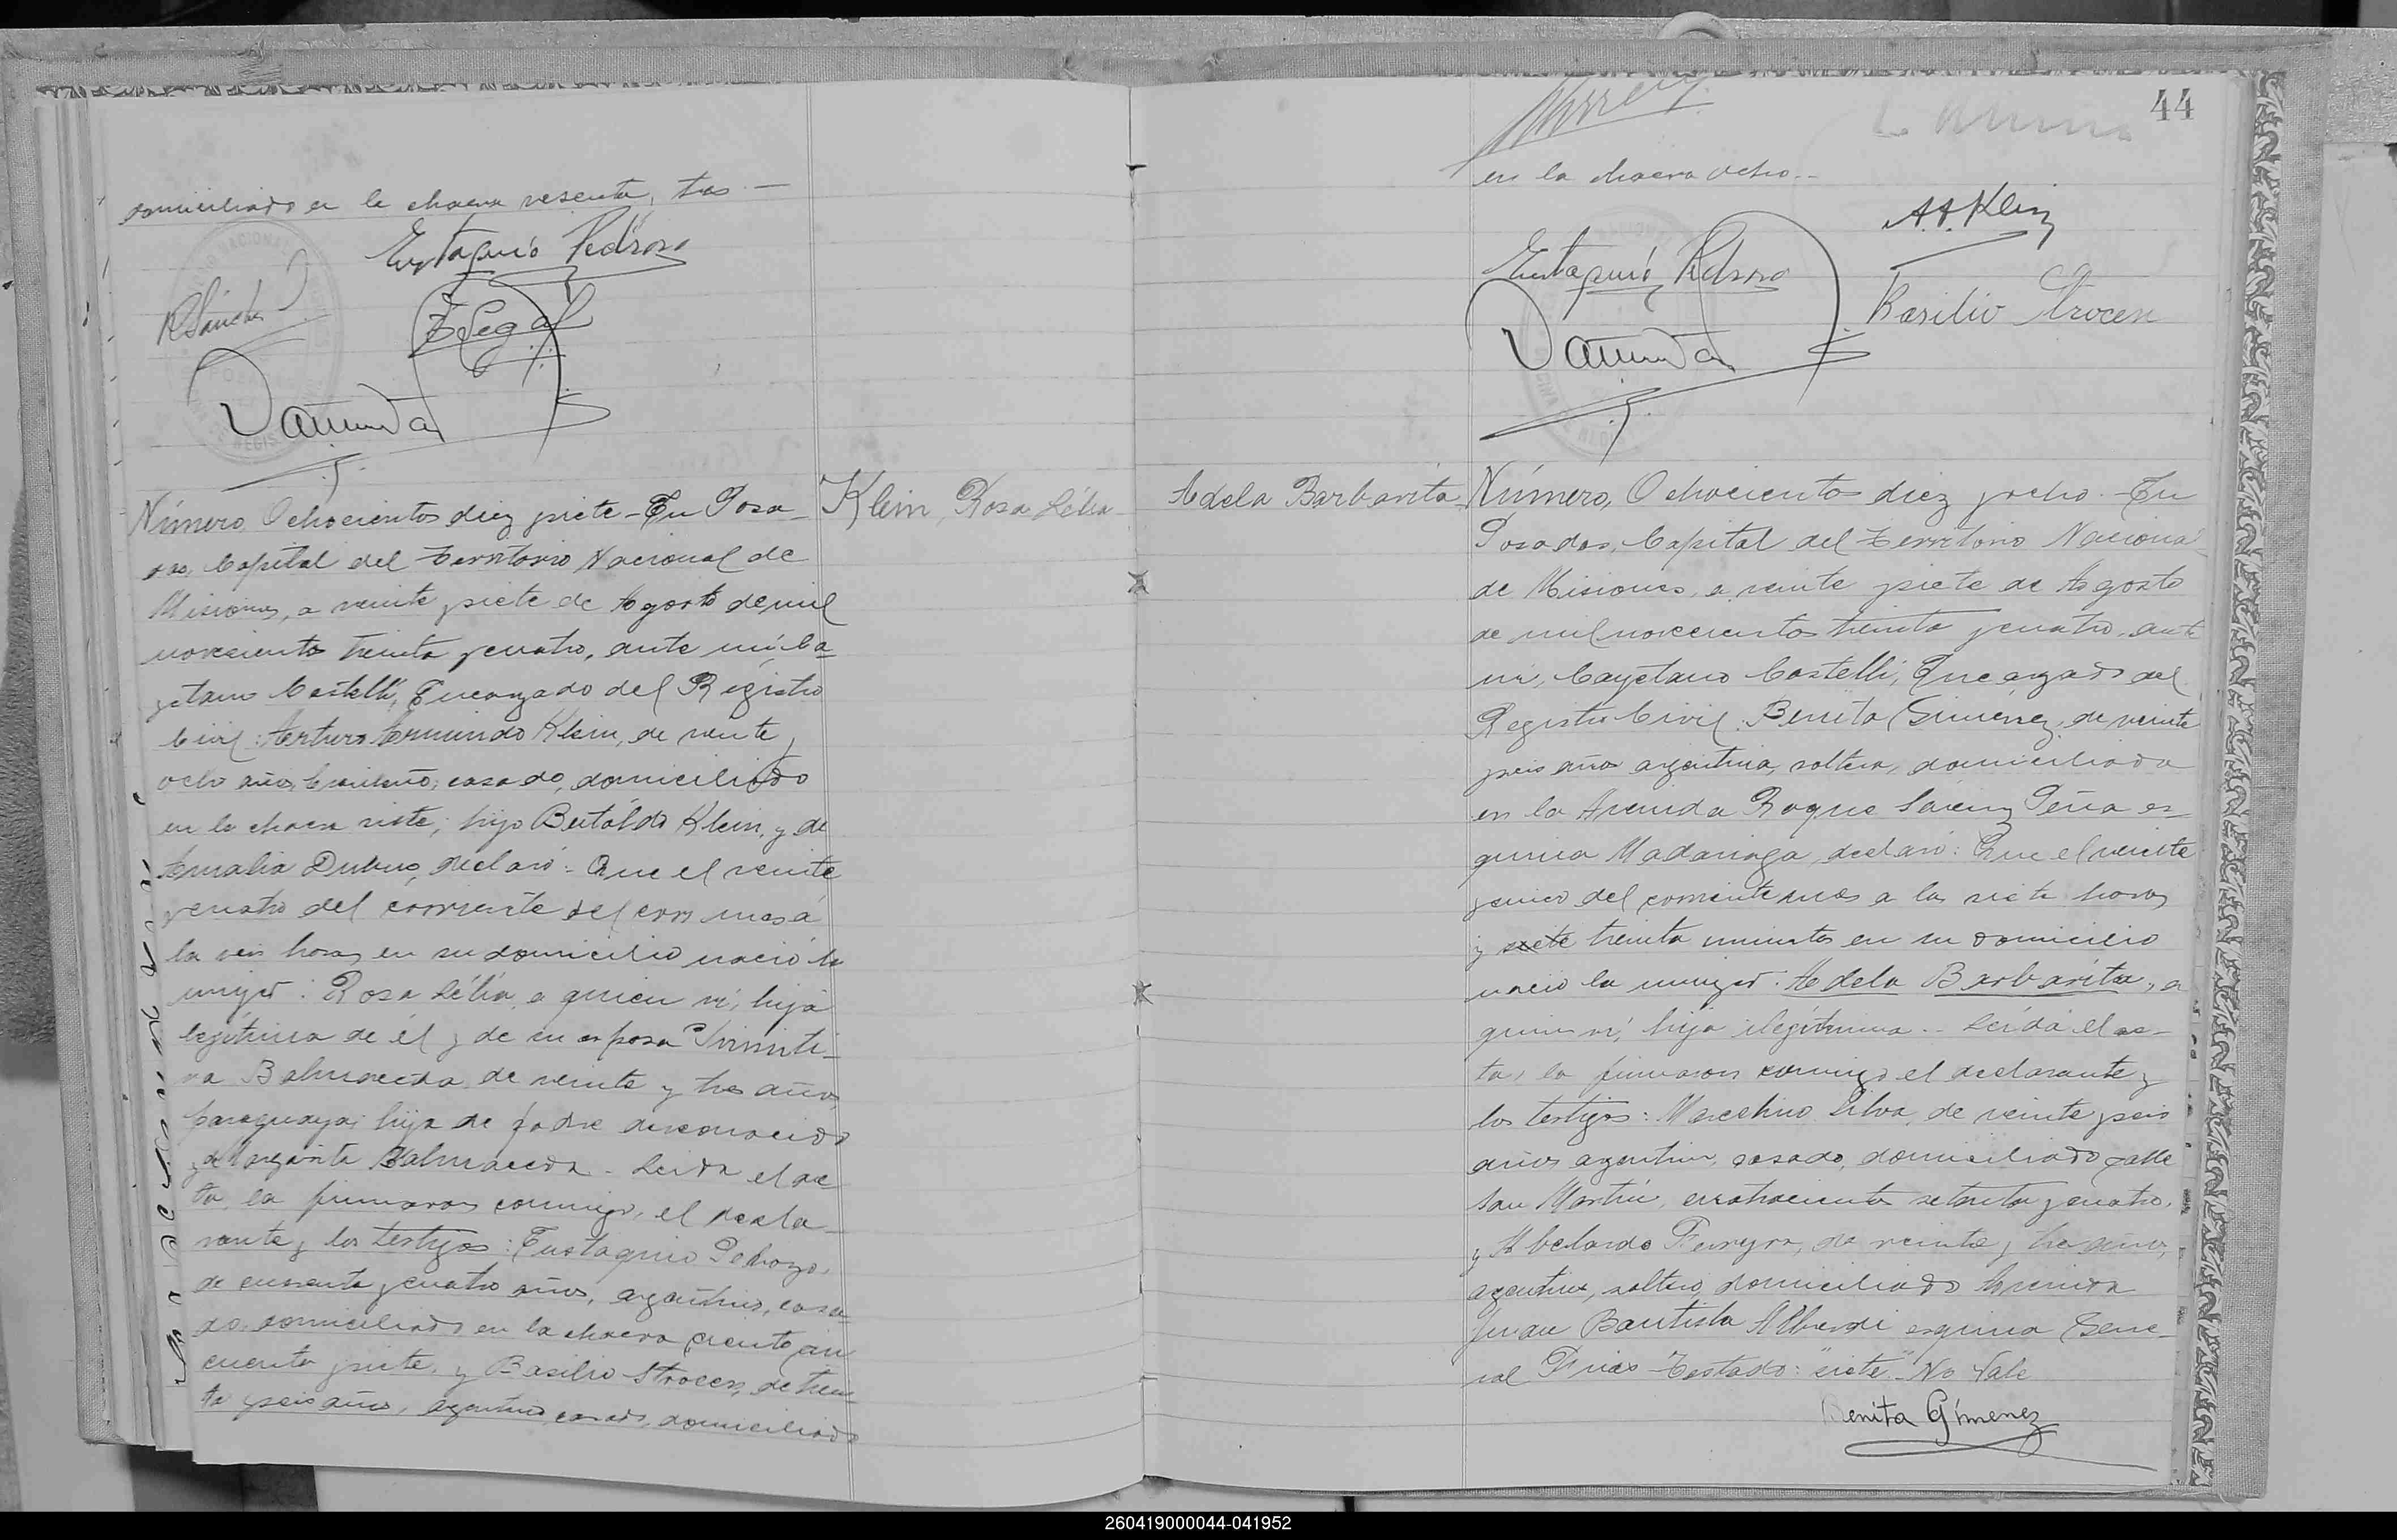 domiciliado en la chacra sesenta y tres.—
Eustaquio Pedroso
RSánchez
Número Ochocientos diez y siete - En Posa-
das, Capital del Territorio Nacional de
Misiones, a veinte y siete de Agosto de mil
novecientos treinta y cuatro, ante mí, Ca-
yetano Castelli, Encargado del Registro
Civil: Arturo Armindo Klein, de veinte y
ocho años, brasileño, casado, domiciliado
en la chacra siete; hijo Bertoldo Klein, y de
Amalia, declaró: Que el veinte
y cuatro del corriente del corr mes á
las seis horas, en su domicilio nació la
mujer: Rosa Lélia, a quien ví, hija
legítima de él y de su esposa Primiti-
va Balmaceda, de veinte y tres años,
paraguaya; hija de padre desconocido
y de Margarita Balmaceda - Leída el ac-
ta, la firmaron conmigo, el decla-
rante y los testigos: Eustaquio Pedrozo,
de cuarenta y cuatro años, argentino, casa-
do, domiciliado en la chacra ciento cin
cuenta y siete, y Basilio Strocen, de trein-
ta y seis años, argentino, casado, domiciliado
Klein, Rosa Lélia
44
en la chacra ocho.-
A.A. Klein
Eustaquio Pedroso
Basilio Strocen
Adela Barbarita
Número, Ochocientos diez y ocho.- En
Posadas, Capital del Territorio Nacional
de Misiones, a veinte y siete de Agosto
de mil novecientos treinta y cuatro, ante
mí, Cayetano Castelli, Encargado del
Registro Civil: Benita Gimenez, de veinte
y seis años argentina, soltera, domiciliada
en la Avenida Roque Sáenz Peña es-
quina Madariaga, declaró: Que el veinte
y cinco del corriente mes a las siete horas
y siete treinta minutos en su domicilio
nació la mujer: Adela Barbarita, a
quien ví, hija ilegítima.- Leída el ac-
ta, la firmaron conmigo el declarante y
los testigos: Marcelino Silva, de veinte y seis
años argentino, casado, domiciliado calle
San Martín, cuatrocientos setenta y cuatro,
y Abelardo Ferreyra, de veinte y tres años,
argentino, soltero, domiciliado Avenida
Juan Bautista Alberdi esquina Gene-
ral Frias - Testado: "siete" - No Vale
Benita Gimenez
260419000044-041952